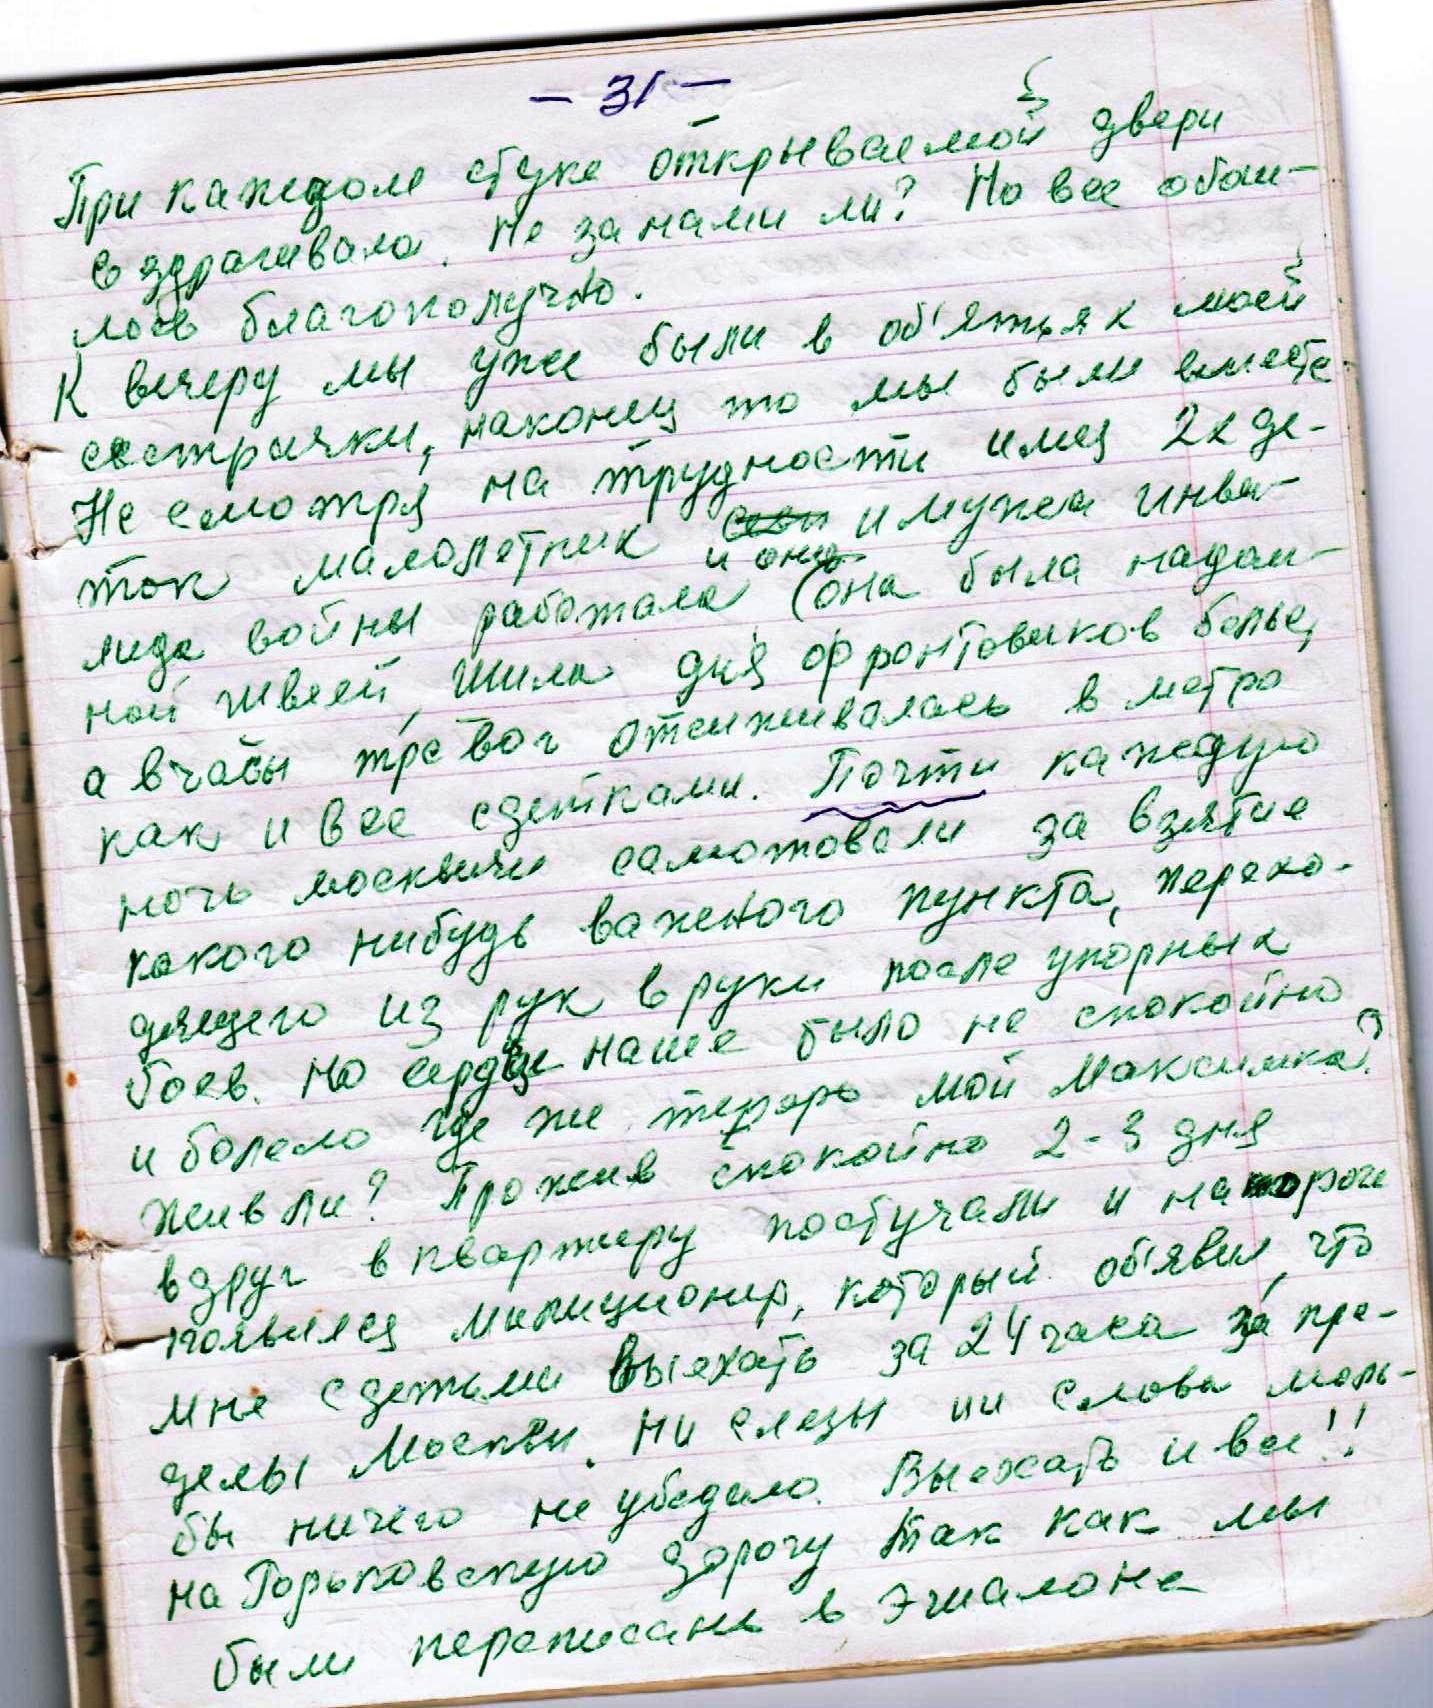 – 31 –
При каждом стуке открываемой двери
вздрагивала. Не за нами ли? Но все обош-
лось благополучно.
К вечеру мы уже были в об'ятьях моей
сестрички, наконец то мы были вместе.
Не смотря на трудности имея 2х де-
ток малолетних и мужа инва-
лида войны работала и она (она была надом-
ной швеей, шила для фронтовиков белье,
а в часы тревог отсиживалась в метро
как и все с детками. Почти каждую
ночь москвичи салютовали за взятие
какого нибудь важного пункта, перехо-
дящего из рук в руки после упорных
боев. Но сердце наше было не спокойно
и болело где же теперь мой Максимка?
Жив ли? Прожив спокойно 2-3 дня
вдруг в квартиру постучали и на пороге
появился милиционер, который об'явил, что
мне с детьми выехать за 24 часа за пре-
делы Москвы. Ни слезы ни слова моль-
бы ничего не убедило. Выехать и все!!
на Горьковскую дорогу так как мы
были переписаны в эшалоне